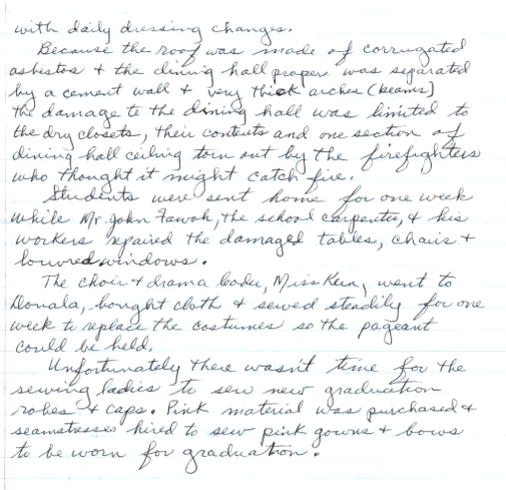 with daily dressing changes.
Because the roof was made of corrugated
asbestos + the dining hall proper was separated
by a cement wall + very thick arches (beams)
the damage to the dining hall was limited to
the dry closets, their contents and one section of
dining hall ceiling torn out by the firefighters
who thought it might catch fire.
Students were sent home for one week
while Mr. John Fawoh, the school carpenter, + his
workers repaired the damaged tables, chairs +
louvred windows.
The choir + drama leader, Miss Kern, went to
Douala, bought cloth + sewed steadily for one
week to replace the costumes so the pageant
could be held.
Unfortunately there wasn't time for the
sewing ladies to sew new graduation
robes + caps. Pink material was purchased +
seamstresses hired to sew pink gowns + bows
to be worn for graduation.